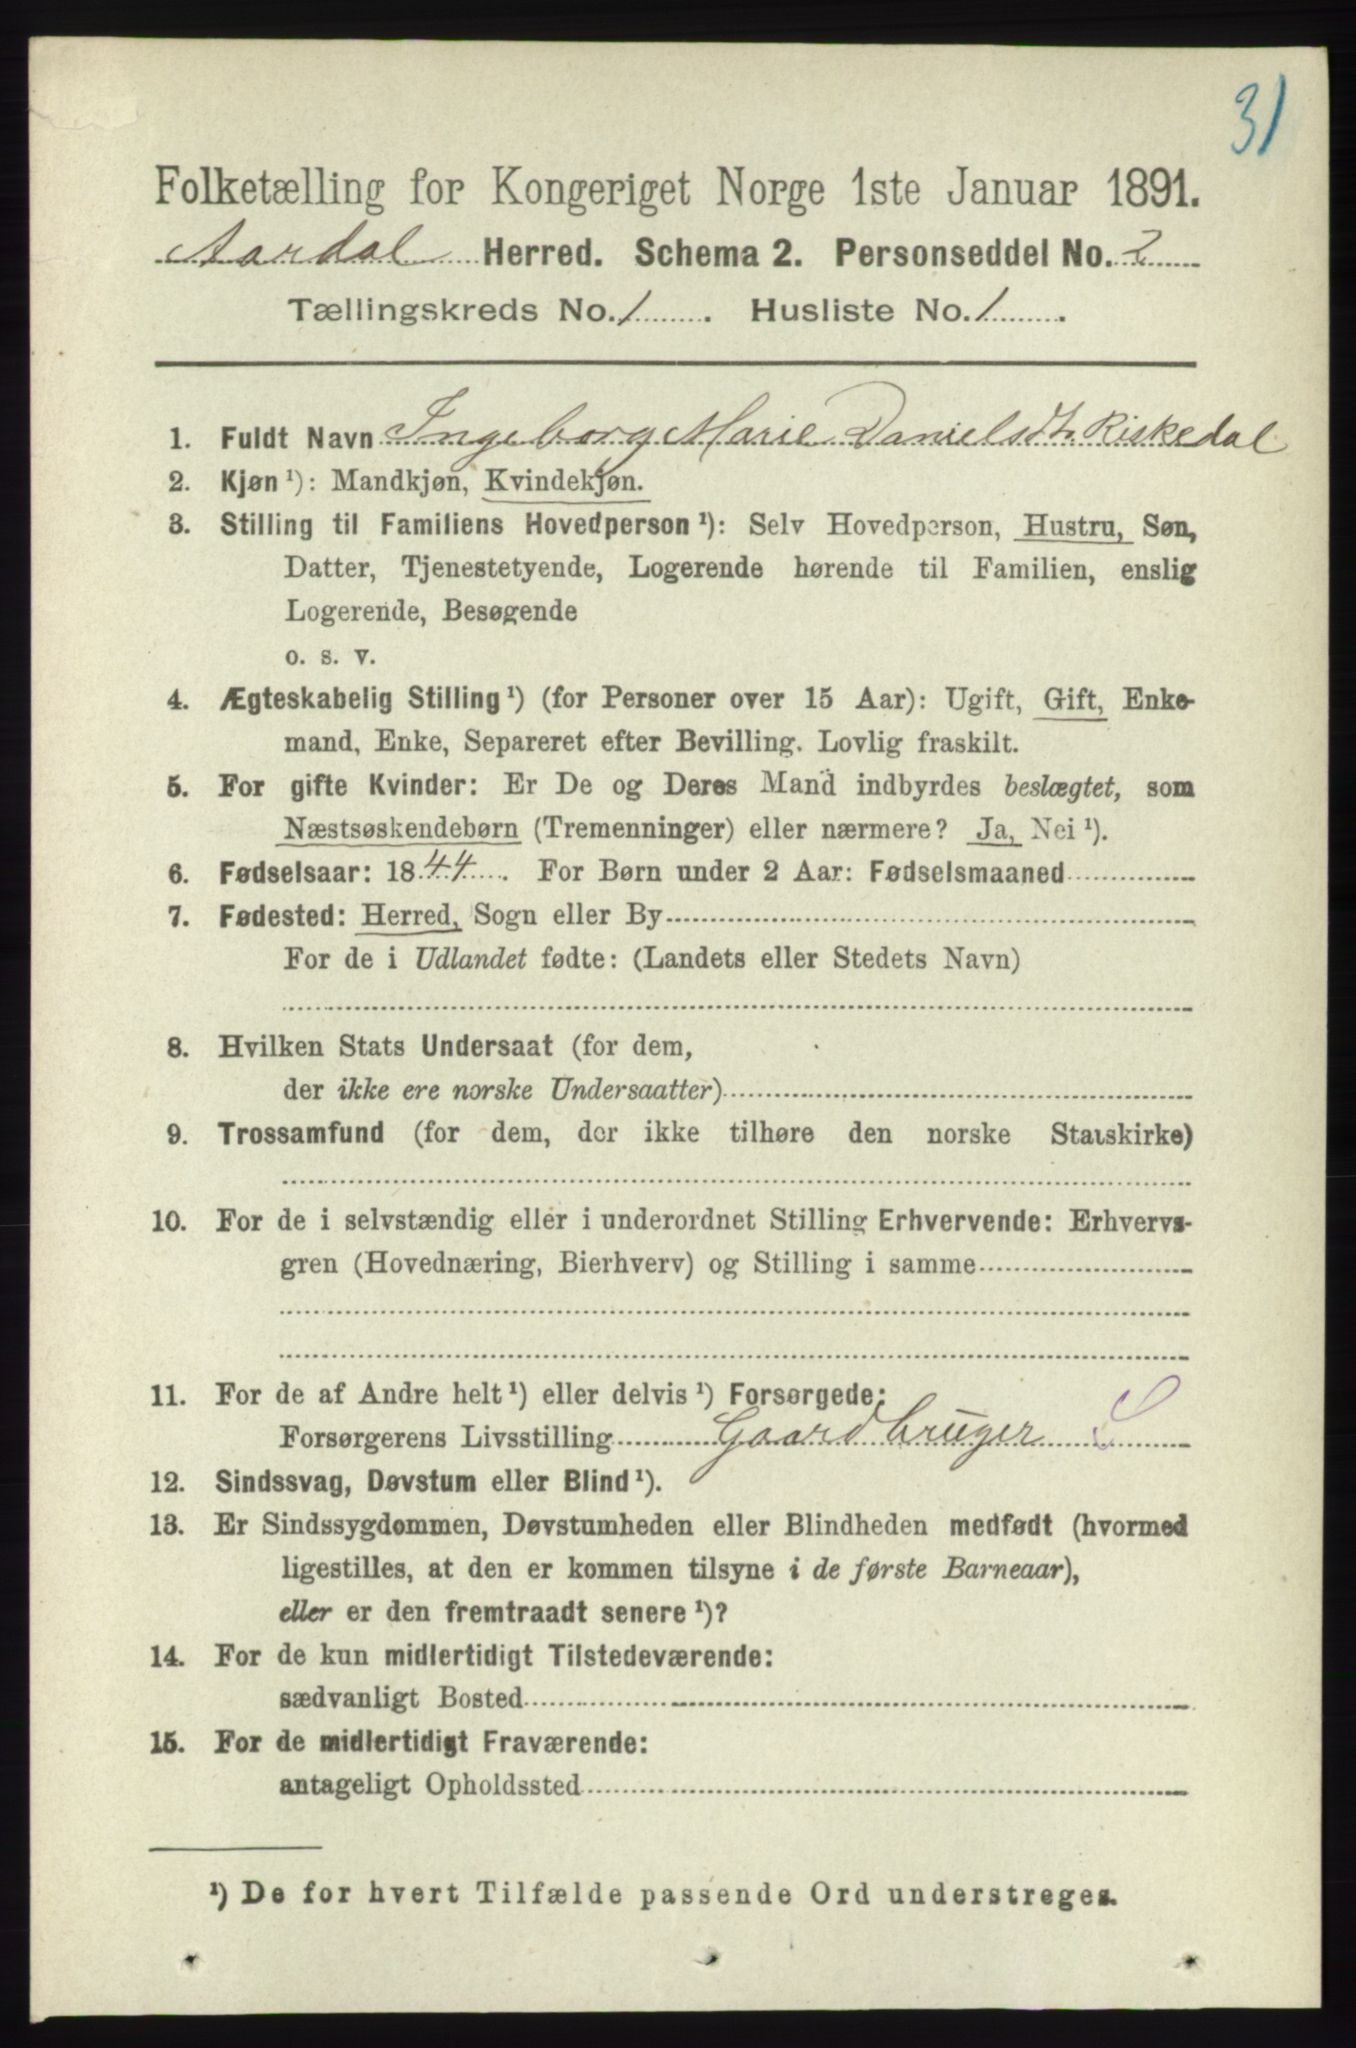 31
Folketælling for Kongeriget Norge 1ste Januar 1891.
Aardal Herred. Schema 2. Personseddel No. 2
Tællingskreds No. 1. Husliste No. 1.
1. Fuldt Navn Ingeborg Marie Danielsdt. Riskedal
2. Kjøn ¹): Mandkjøn, Kvindekjøn.
3. Stilling til Familiens Hovedperson ¹): Selv Hovedperson, Hustru, Søn,
Datter, Tjenestetyende, Logerende hørende til Familien, enslig
Logerende, Besøgende
o. s. v.
4. Ægteskabelig Stilling ¹) (for Personer over 15 Aar): Ugift, Gift, Enke-
mand, Enke, Separeret efter Bevilling. Lovlig fraskilt.
5. For gifte Kvinder: Er De og Deres Mand indbyrdes beslægtet, som
Næstsøskendebørn (Tremenninger) eller nærmere? Ja, Nei ¹).
6. Fødselsaar: 1844. For Børn under 2 Aar: Fødselsmaaned
7. Fødested: Herred, Sogn eller By
For de i Udlandet fødte: (Landets eller Stedets Navn)
8. Hvilken Stats Undersaat (for dem,
der ikke ere norske Undersaatter)
9. Trossamfund (for dem, der ikke tilhøre den norske Statskirke)
10. For de i selvstændig eller i underordnet Stilling Erhvervende: Erhvervs-
gren (Hovednæring, Bierhverv) og Stilling i samme
11. For de af Andre helt ¹) eller delvis ¹) Forsørgede:
Forsørgerens Livsstilling Gaardbruger S
12. Sindssvag, Døvstum eller Blind ¹).
13. Er Sindssygdommen, Døvstumheden eller Blindheden medfødt (hvormed
ligestilles, at den er kommen tilsyne i de første Barneaar),
eller er den fremtraadt senere ¹)?
14. For de kun midlertidigt Tilstedeværende:
sædvanligt Bosted
15. For de midlertidigt Fraværende:
antageligt Opholdssted
¹) De for hvert Tilfælde passende Ord understreges.